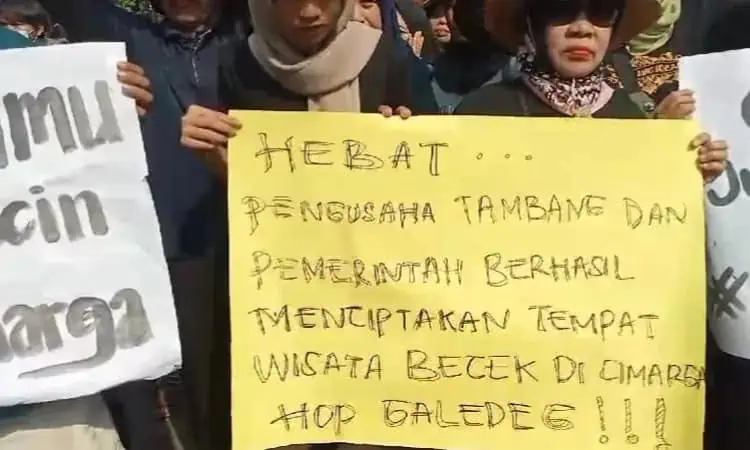 mu
cin
arga
HEBAT ...
PENGUSAHA TAMBANG DAN
PEMERINTAH BERHASIL
MENCIPTAKAN TEMPAT
WISATA BECEK DI CIMARGA
HOP GALEDEG !!!
#